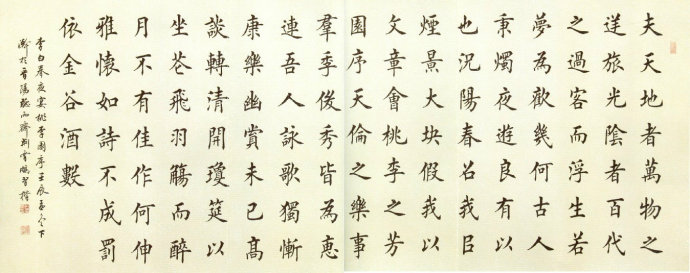 夫天地者萬物之
逆旅光陰者百代
之過客而浮生若
夢為歡幾何古人
秉燭夜遊良有以
也況陽春召我㠯
煙景大塊假我以
文章會桃李之芳
園序天倫之樂事
羣季俊秀皆為惠
連吾人詠歌獨慚
康樂幽賞未已高
談轉清開瓊筵以
坐花飛羽觴而醉
月不有佳作何伸
雅懷如詩不成罰
依金谷酒數
李白春夜宴桃李園序壬辰孟冬下
浣於晉陽聽雨齋劉雲習楷